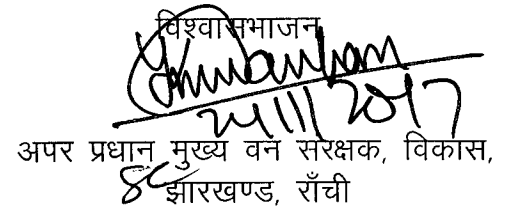 विश्वासभाजन
24/11/2017
अपर प्रधान मुख्य वन संरक्षक, विकास,
झारखण्ड, राँची